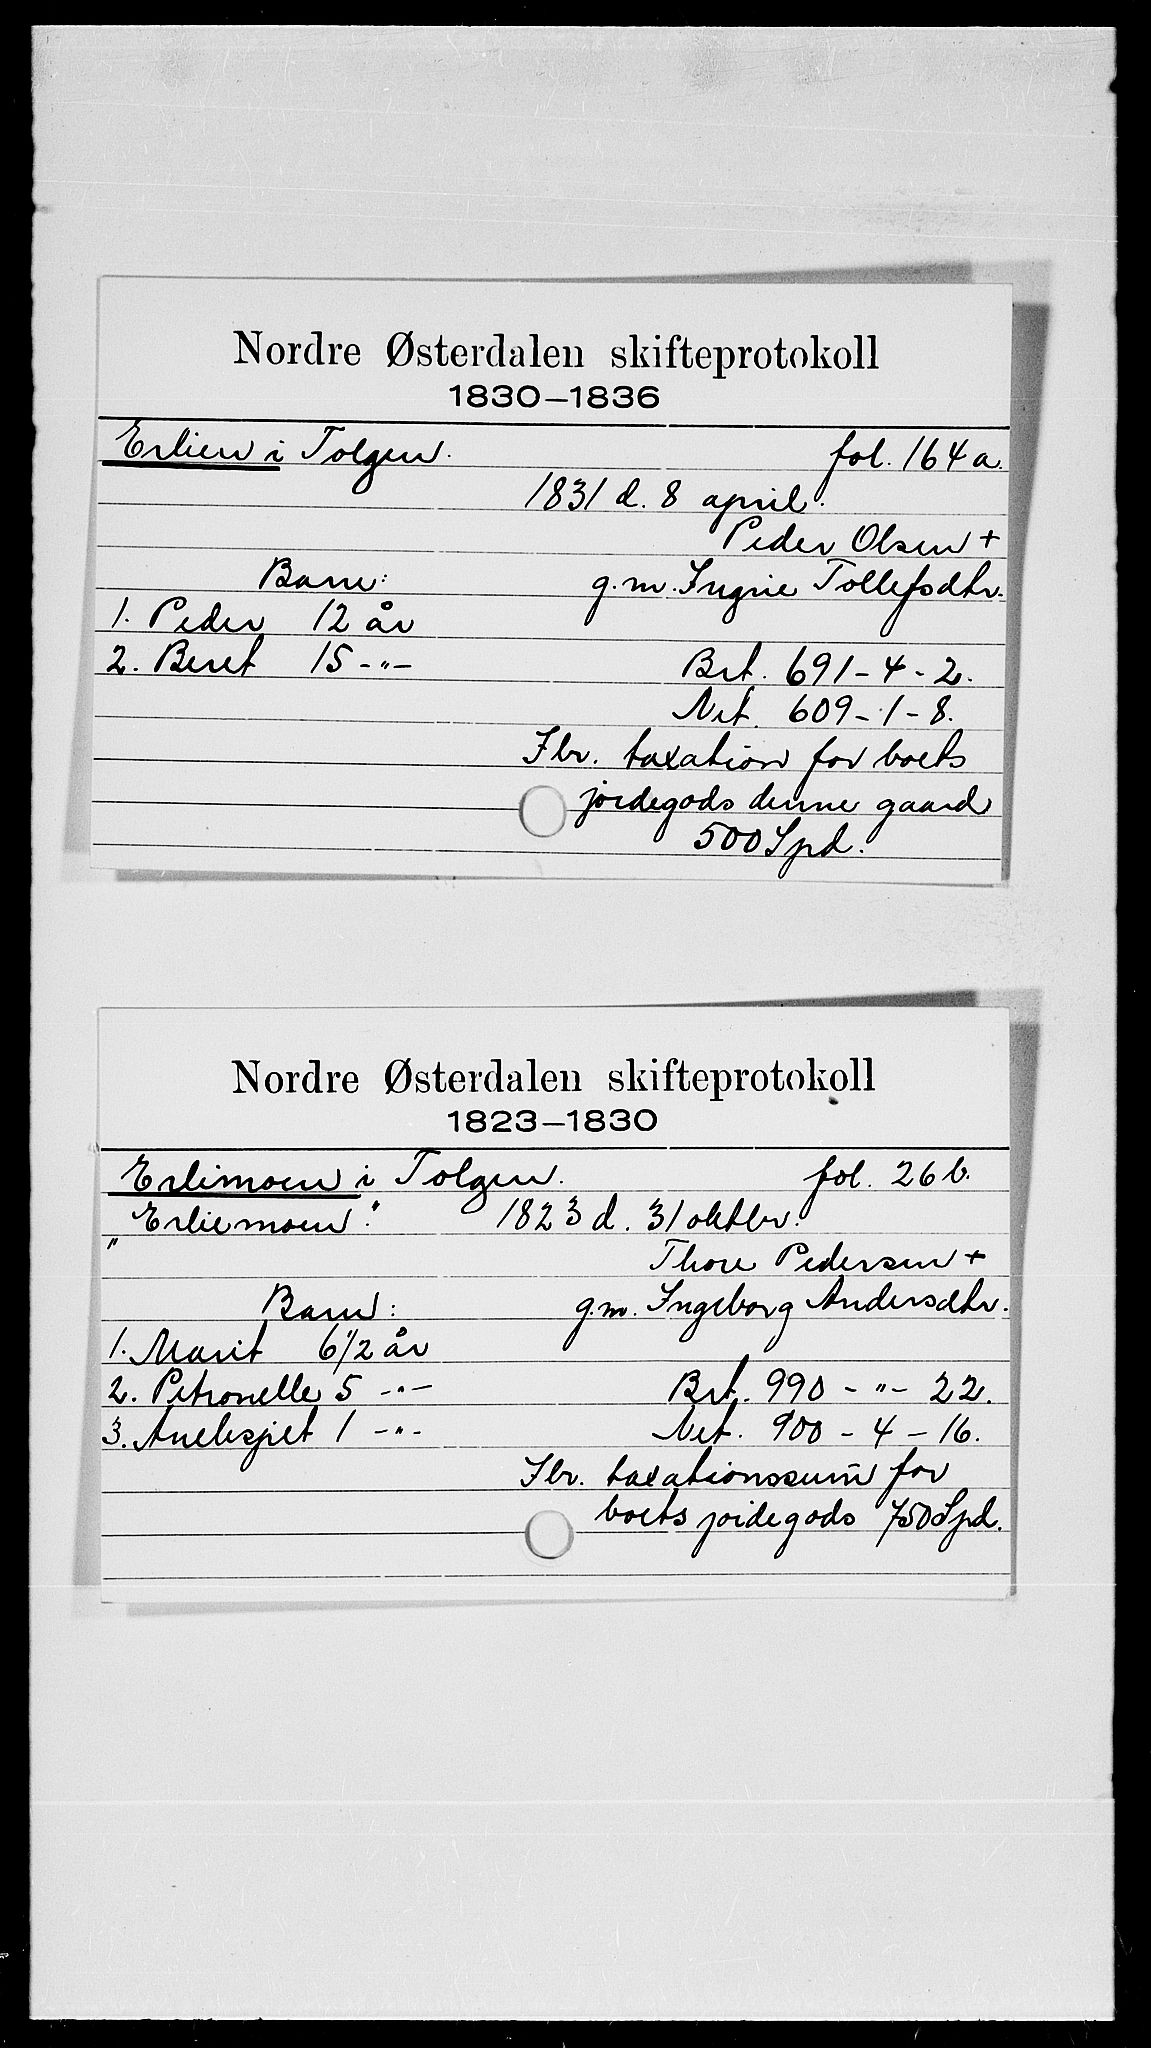 Nordre Østerdalen skifteprotokoll
1830–1836
Erlien i Tolgen. fol. 164 a.
1831 d. 8 april.
Peder Olsen +
Barn: g.m. Ingrie Tollefsdtr.
1. Peder 12 år
2. Beret 15 -"- Brt. 691 - 4 - 2.
Net. 609 - 1 - 8.
Ibr. taxation for boets
jordegods denne gaard
500 Spd.
Nordre Østerdalen skifteprotokoll
1823–1830
Erlimoen i Tolgen. fol. 26 b.
"Erliemoen". 1823 d. 31 oktbr.
Thore Pedersen +
Barn: g.m. Ingeborg Andersdtr.
1. Marit 6 1/2 år
2. Petronelle 5 -"- Brt. 990 - " - 22.
3. Anelispet 1 -"- Net. 900 - 4 - 16.
Ibr. taxationssum̄ for
boets jordegods 750 Spd.